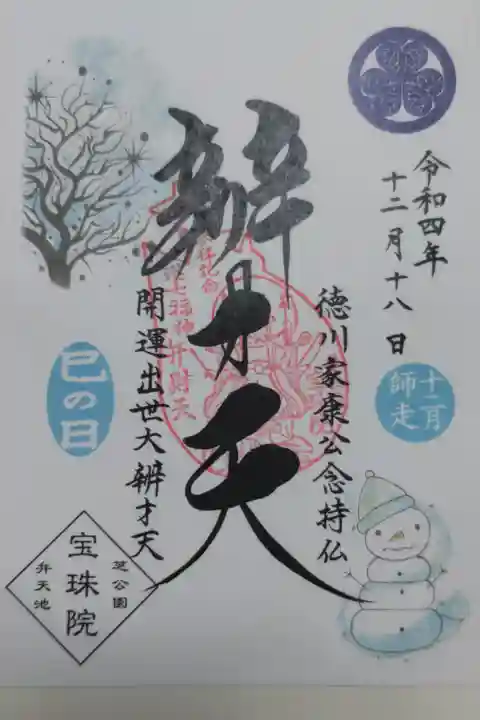 令和四年
十二月十八日
十二月
師走
徳川家康公念持仏
辨才天
開運出世大辨才天
巳の日
芝公園
宝珠院
弁天池